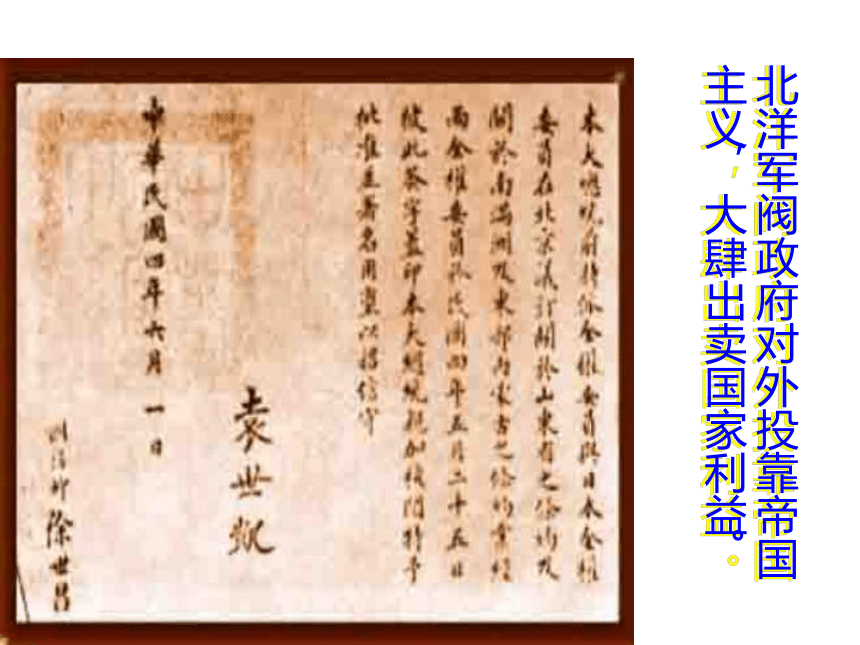 北洋军阀政府对外投靠帝国
主义，大肆出卖国家利益。
本大總統前特派全權委員與日本全權
委員在北京議訂關於山東省之條約及
關於南滿洲及東部內蒙古之條約業經
兩全權委員於民國四年五月二十五日
彼此簽字蓋印本大總統親加核閱特予
批准並署名用璽以昭信守
袁世凱
中華民國四年六月一日
徐世昌